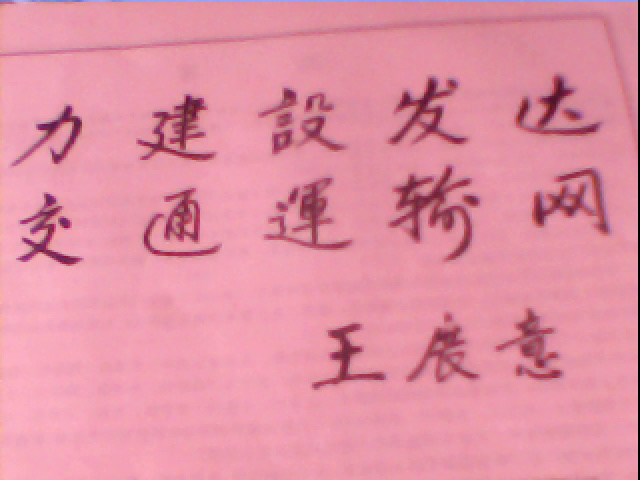 力建設发达
交通運输网
王展意